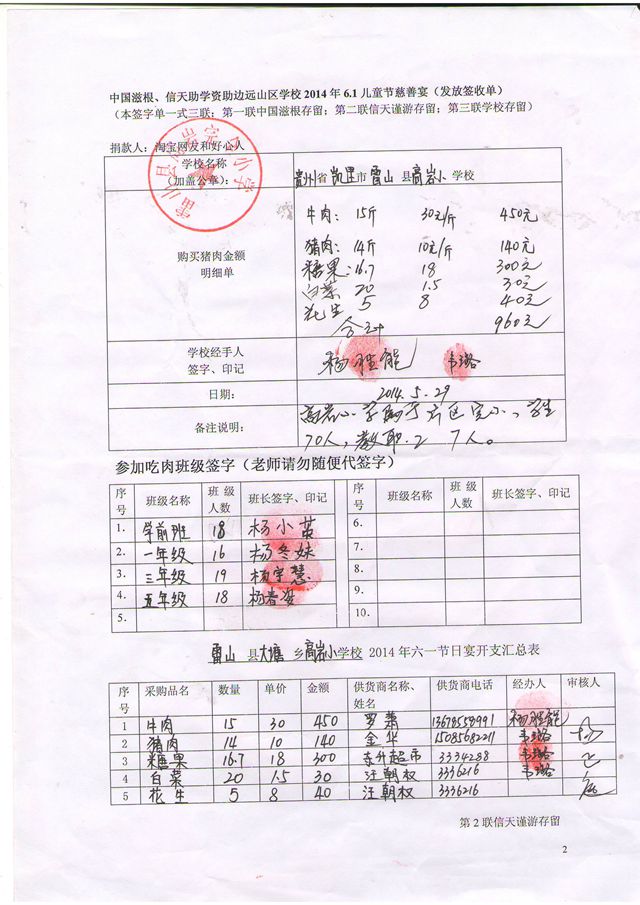 中国滋根、信天助学资助边远山区学校 2014 年 6.1 儿童节慈善宴（发放签收单）
（本签字单一式三联：第一联中国滋根存留；第二联信天谨游存留；第三联学校存留）
捐款人：淘宝网友和好心人
学校名称
（加盖公章）：
贵州省 凯里市 雷山 县 高岩小 学校
购买猪肉金额
明细单
牛肉： 15斤 30元/斤 450元
猪肉： 14斤 10元/斤 140元
糖果： 16.7 18 300元
白菜 20 1.5 30元
花生 5 8 40元
合计 960元
学校经手人
签字、印记
日期： 2014.5.29
备注说明：
高岩小学 完小，学生
70人，教职 7人。
参加吃肉班级签字（老师请勿随便代签字）
序号 班级名称 班级人数 班长签字、印记 序号 班级名称 班级人数 班长签字、印记
1. 学前班 18 杨小 6.
2. 一年级 16 杨冬妹 7.
3. 三年级 19 杨宇慧 8.
4. 五年级 18 杨春 9.
5. 10.
雷山 县 大塘 乡 高岩小学校 2014 年六一节日宴开支汇总表
序号 采购品名 数量 单价 金额 供货商名称、姓名 供货商电话 经办人 审核人
1 牛肉 15 30 450 罗萧
2 猪肉 14 10 140 金华 15085682211
3 糖果 16.7 18 300 东升超市 3334288
4 白菜 20 1.5 30 汪朝权 3336216
5 花生 5 8 40 汪朝权 3336216
第 2 联信天谨游存留
2